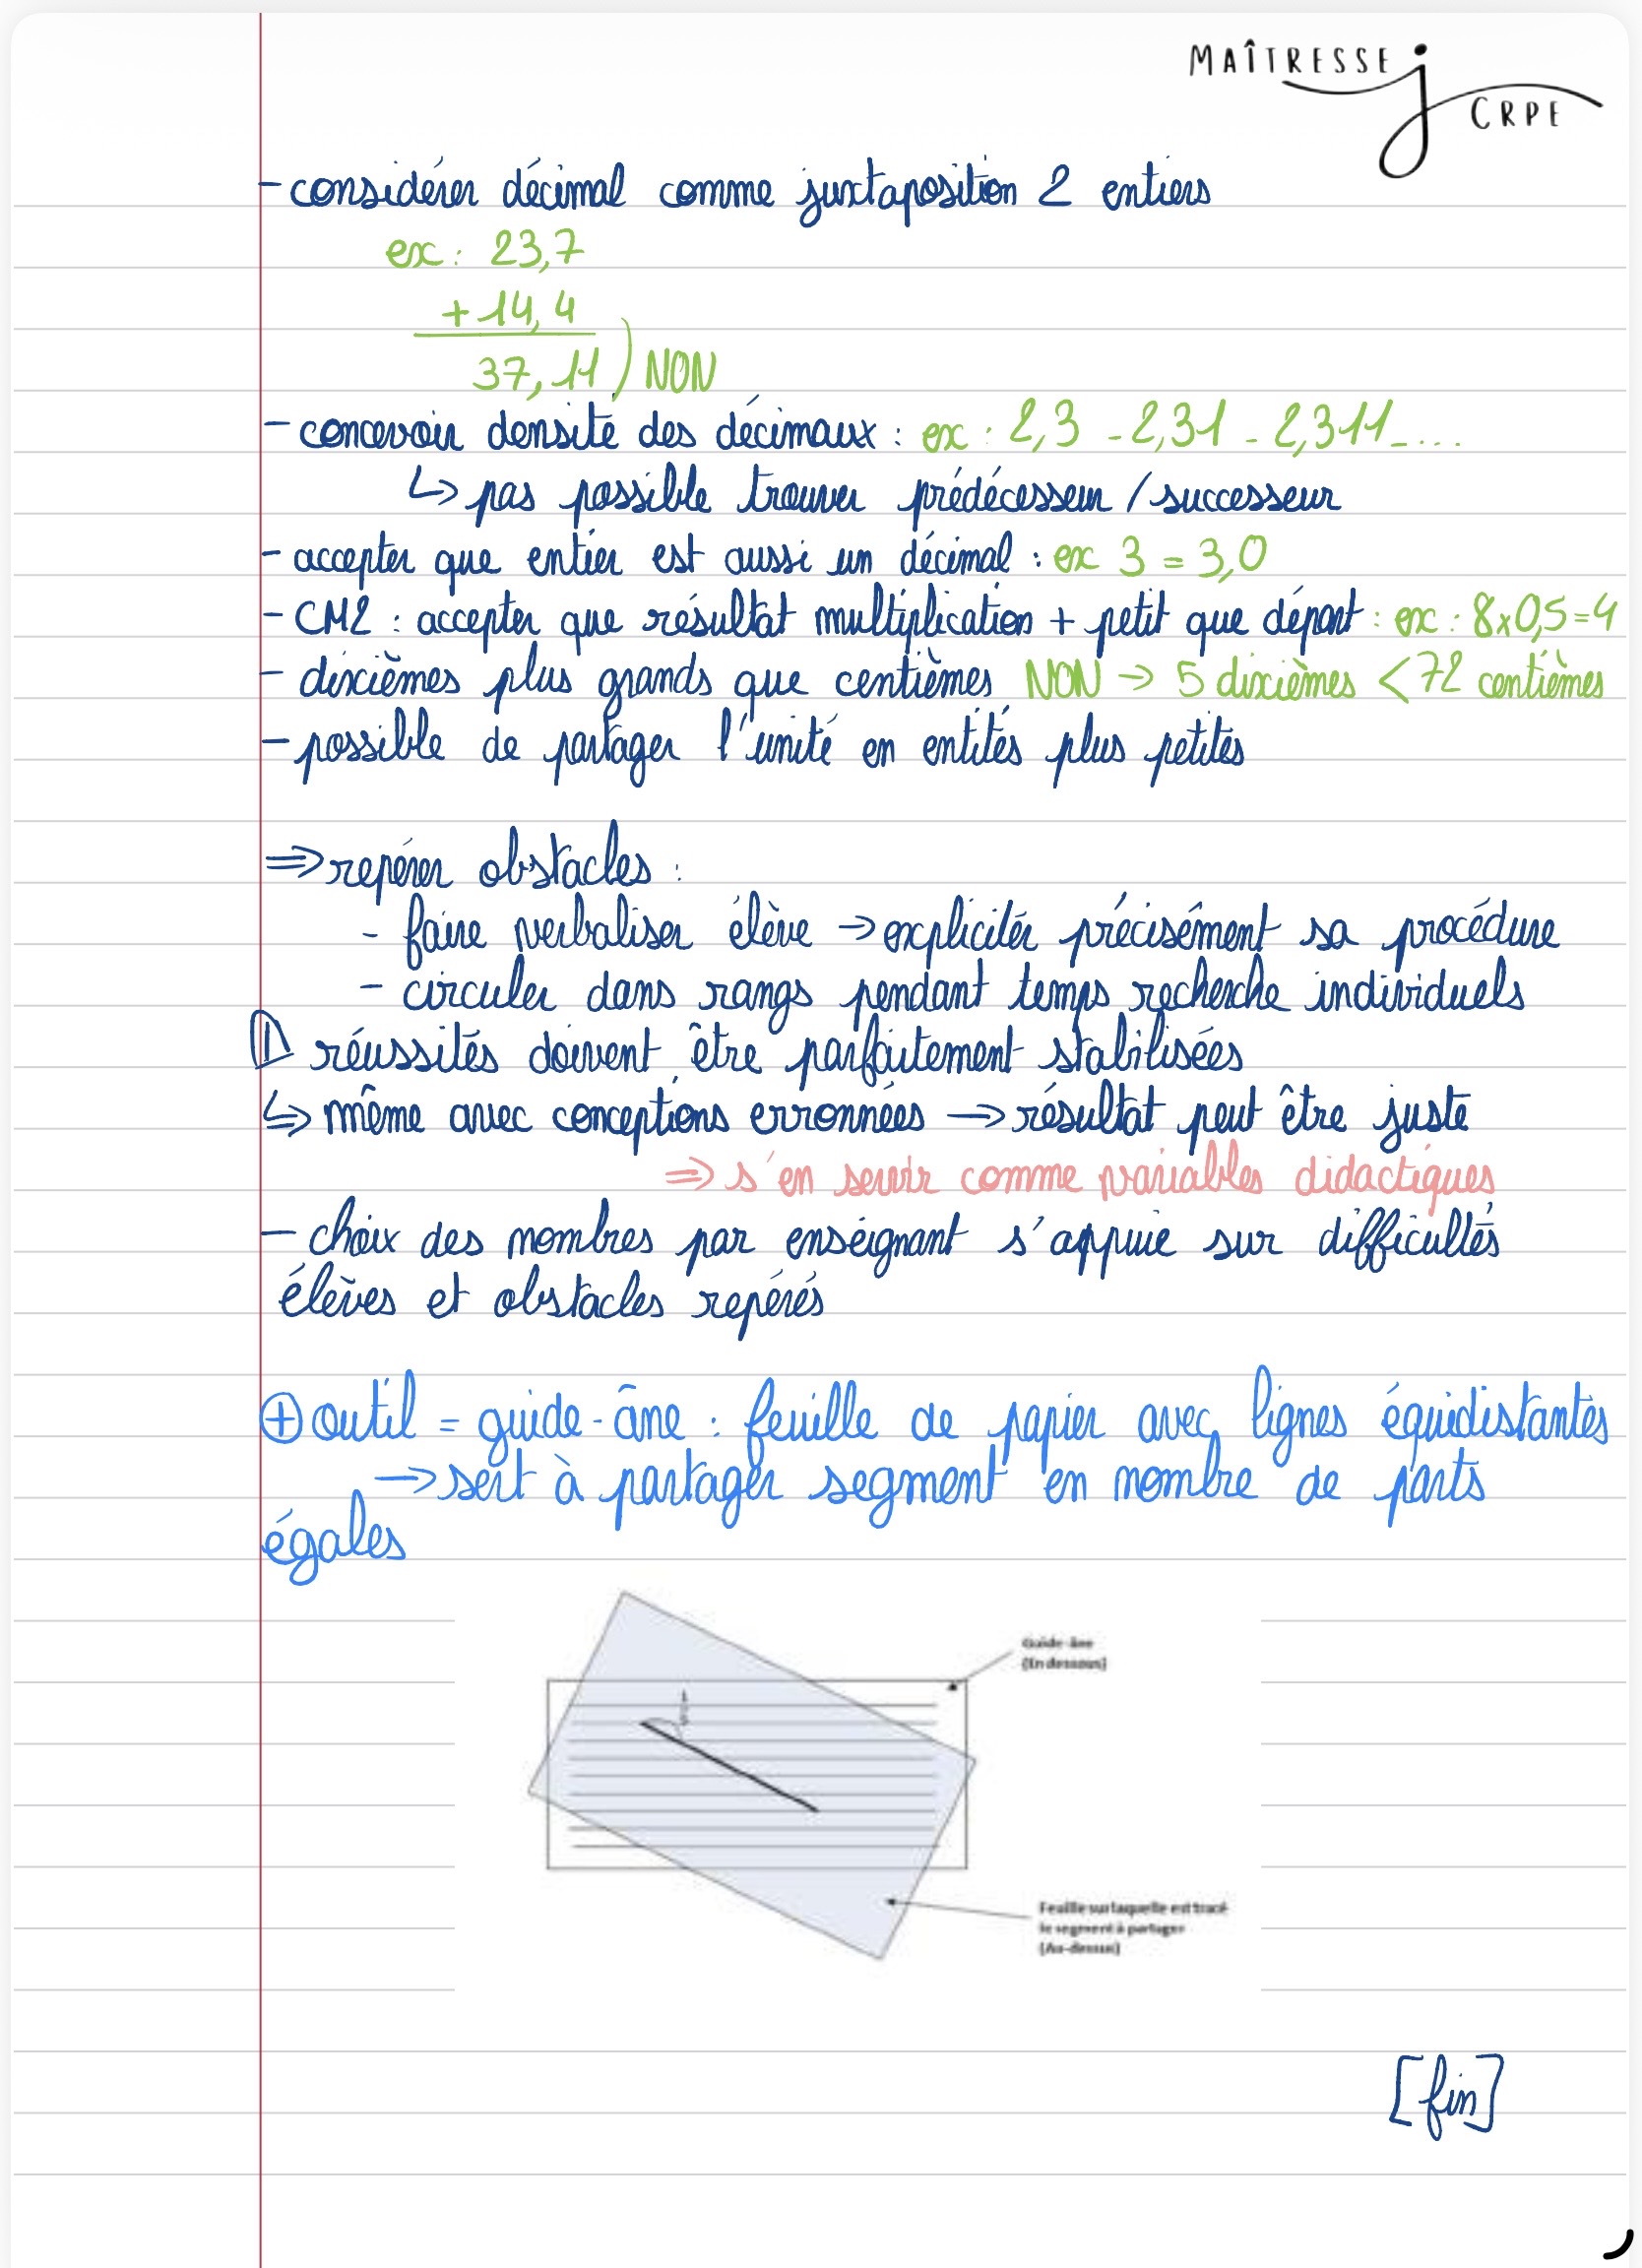 MAÎTRESSE j
CRPE
- considérer décimal comme juxtaposition 2 entiers
ex : 23,7
+ 14,4
37,11 ) NON
- concevoir densité des décimaux : ex : 2,3 - 2,31 - 2,311 - ....
↳ pas possible trouver prédécesseur / successeur
- accepter que entier est aussi un décimal : ex 3 = 3,0
- CM2 : accepter que résultat multiplication + petit que départ : ex : 8x0,5=4
- dixièmes plus grands que centièmes NON → 5 dixièmes < 72 centièmes
- possible de partager l'unité en entités plus petites
⇒ repérer obstacles :
- faire verbaliser élève → expliciter précisément sa procédure
- circuler dans rangs pendant temps recherche individuels
⚠ réussités doivent être parfaitement stabilisées
↳ même avec conceptions erronnées → résultat peut être juste
⇒ s'en servir comme variables didactiques
- choix des nombres par enseignant s'appuie sur difficultés
élèves et obstacles repérés
⊕ outil = guide-âne : feuille de papier avec lignes équidistantes
→ sert à partager segment en nombre de parts
égales
Guide-âne
(En dessous)
Feuille sur laquelle est tracé
le segment à partager
(Au-dessus)
[fin]